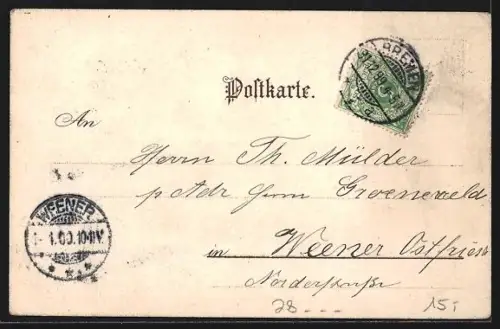 Postkarte.
BREMEN
31.12.99.
An
Herrn Th. Mülder
p Adr Herrn Groeneveld
in Weener Ostfriesl
Norderstraße
WEENER
1.1.00.10-11V.
28 - - -
15.-